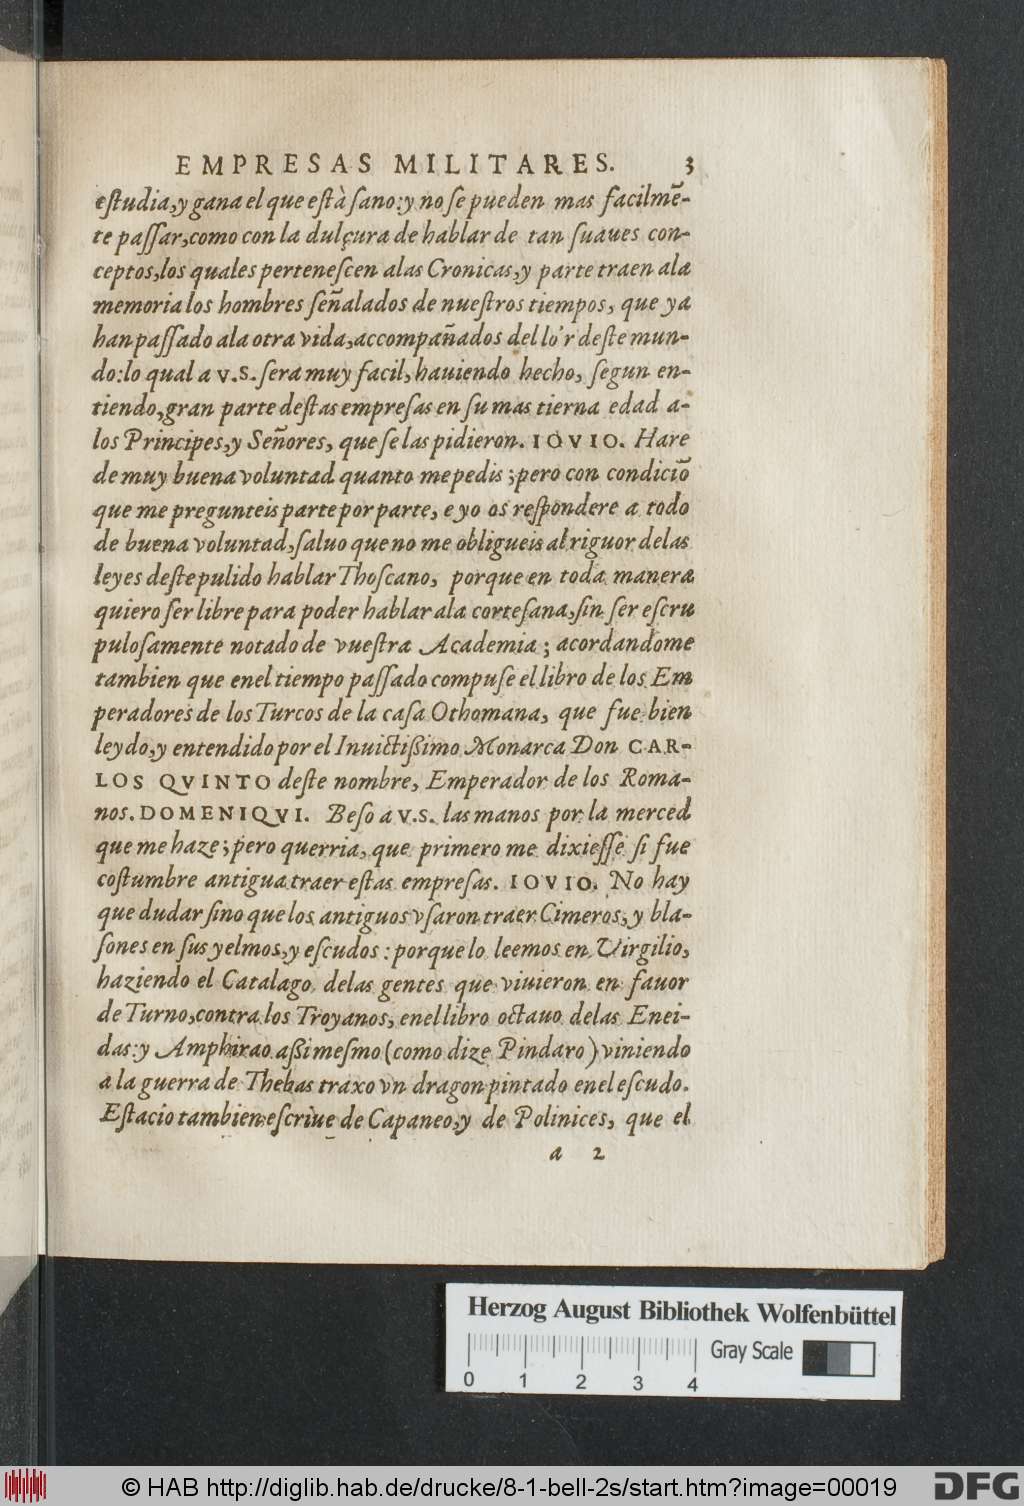 EMPRESAS MILITARES. 3
eſtudia,y gana el que eſtà ſano:y no ſe pueden mas facilmē-
te paſſar,como con la dulçura de hablar de tan ſuaues con-
ceptos,los quales pertenеſcen alas Cronicas,y parte traen ala
memoria los hombres ſeñalados de nueſtros tiempos, que ya
han paſſado ala otra vida,accompañados del lo'r deſte mun-
do:lo qual a V.S. ſera muy facil, hauiendo hecho, ſegun en-
tiendo,gran parte deſtas empreſas en ſu mas tierna edad a-
los Principes,y Señores, que ſe las pidieron. IOVIO. Hare
de muy buena voluntad quanto me pedis ; pero con condiciō
que me pregunteis parte por parte, e yo os reſpondere a todo
de buena voluntad, ſaluo que no me obligueis al riguor delas
leyes deſte pulido hablar Thoſcano, porque en toda manera
quiero ſer libre para poder hablar ala corteſana,ſin ſer eſcru
puloſamente notado de vueſtra Academia ; acordandome
tambien que enel tiempo paſſado compuſe el libro de los Em
peradores de los Turcos de la caſa Othomana, que fue bien
leydo,y entendido por el Inuictißimo Monarca Don CAR-
LOS QVINTO deſte nombre, Emperador de los Roma-
nos. DOMENIQVI. Beſo a V.S. las manos por la merced
que me haze ; pero querria, que primero me dixieſſe ſi fue
coſtumbre antigua traer eſtas empreſas. IOVIO. No hay
que dudar ſino que los antiguos vſaron traer Cimeros, y bla-
ſones en ſus yelmos,y eſcudos : porque lo leemos en Virgilio,
haziendo el Catalago delas gentes que viuieron en fauor
de Turno,contra los Troyanos, enel libro octauo delas Enei-
das:y Amphirao aßi meſmo (como dize Pindaro) viniendo
a la guerra de Thebas traxo vn dragon pintado enel eſcudo.
Eſtacio tambien eſcriue de Capaneo,y de Polinices, que el
a 2
Herzog August Bibliothek Wolfenbüttel
Gray Scale
0 1 2 3 4
© HAB http://diglib.hab.de/drucke/8-1-bell-2s/start.htm?image=00019
DFG